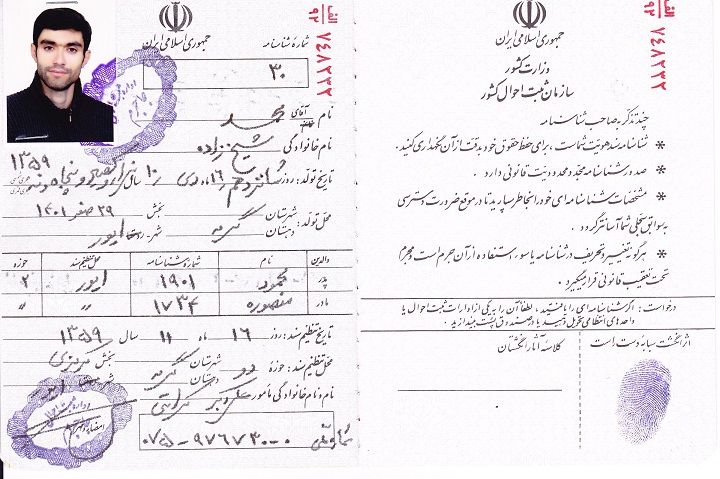 الف ۹۲ ۷۴۸۲۳۲
جمهوری اسلامی ایران
شماره شناسنامه
۳۰
نام آقای محمد
نام خانوادگی شیخ زاده
تاریخ تولد: روز شانزدهم ۱۶ ماه دی ۱۰ سال
۱۳۵۹
۲۹ صفر ۱۴۰۱
محل تولد: شهرستان
دهستان
بخش
شهر
والدین نام شماره شناسنامه محل تنظیم سند حوزه
پدر محمود ۱۹۰۱ ۲
مادر منصوره ۱۷۳۴ " "
تاریخ تنظیم سند: روز ۱۶ ماه ۱۱ سال ۱۳۵۹
محل تنظیم سند: حوزه دو شهرستان بخش مرکزی
دهستان شهر
نام و نام خانوادگی مأمور علی اکبر
شماره ملی ۰-۹۷۶۷۳۰-۰۷۵
الف ۹۲ ۷۴۸۲۳۲
جمهوری اسلامی ایران
وزارت کشور
سازمان ثبت احوال کشور
چند تذکر به صاحب شناسنامه
* شناسنامه سند هویت شماست، برای حفظ حقوق خود به دقت از آن نگهداری کنید.
* صدور شناسنامه مجدد محدودیت قانونی دارد.
* مشخصات شناسنامه ای خود را بخاطر بسپارید تا در موقع ضرورت دسترسی
به سوابق سجلی شما آسانتر گردد.
* هرگونه تغییر و تحریف در شناسنامه یا سوء استفاده از آن جرم است و مجرم
تحت تعقیب قانونی قرار میگیرد.
درخواست: اگر شناسنامه ای را یافتید، لطفاً آن را به یکی از ادارات ثبت احوال یا
واحدهای انتظامی تحویل دهید یا در صندوق پست بیندازید.
اثر انگشت سبابه دست است
کلاسه آثار انگشتان